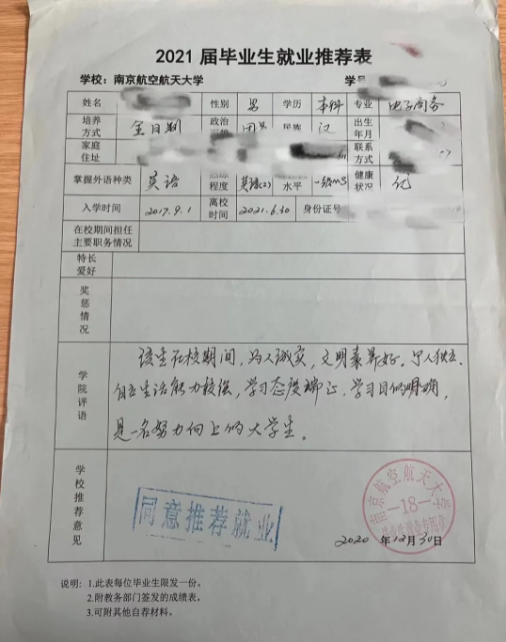 2021届毕业生就业推荐表
学校：南京航空航天大学 学号
姓名 性别 男 学历 本科 专业 电子商务
培养方式 全日制 政治 团员 民族 汉 出生年月
家庭住址 联系方式
掌握外语种类 英语 程度 水平 健康状况
入学时间 2017.9.1 离校时间 2021.6.30 身份证号
在校期间担任主要职务情况
特长爱好
奖惩情况
学院评语
该生在校期间，为人诚实，文明素养好。个人独立、
自主生活能力较强，学习态度端正，学习目的明确，
是一名努力向上的大学生。
学校推荐意见
同意推荐就业
南京航空航天大学
-18-
2020年12月30日
说明：1.此表每位毕业生限发一份。
2.附教务部门签发的成绩表。
3.可附其他自荐材料。